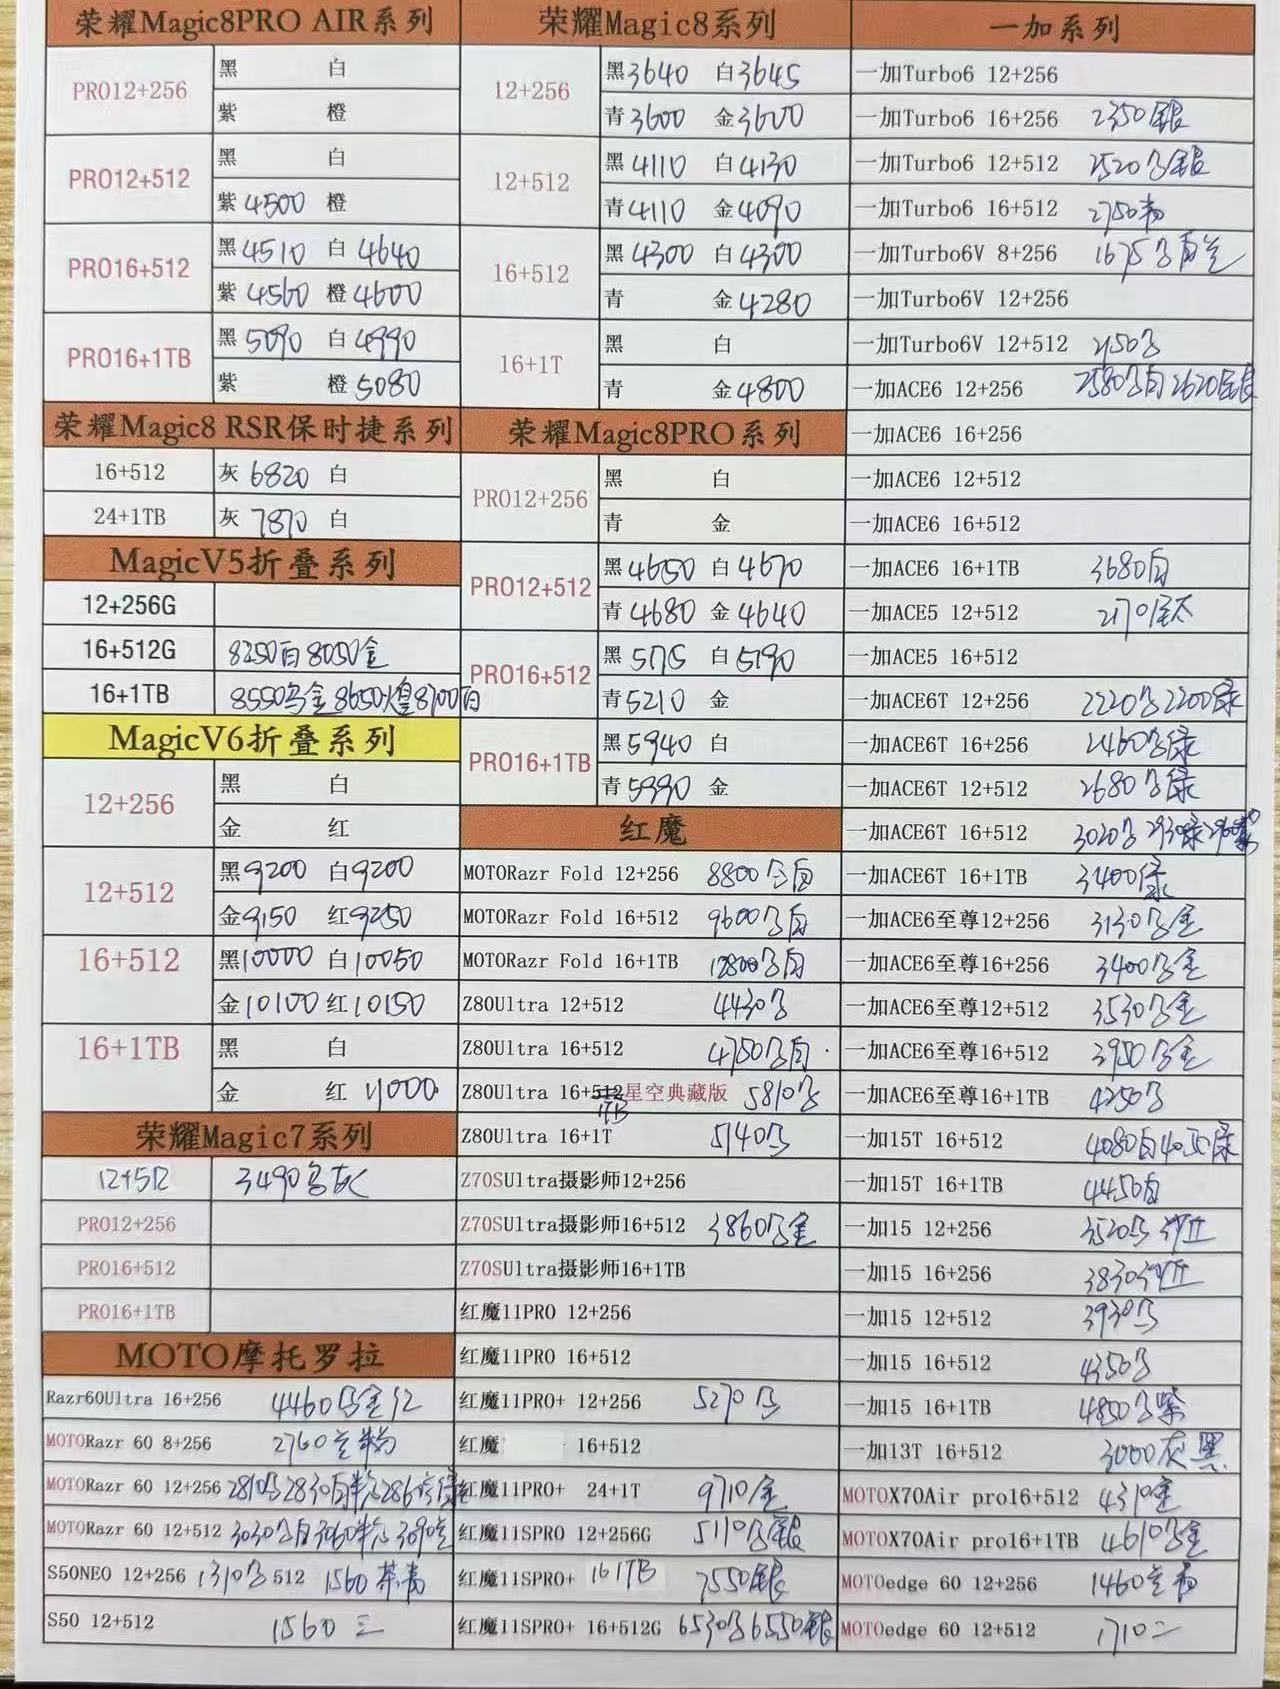 荣耀Magic8PRO AIR系列
PRO12+256
黑 白
紫 橙
PRO12+512
黑 白
紫4500 橙
PRO16+512
黑4510 白4640
紫4560 橙4600
PRO16+1TB
黑5090 白4990
紫 橙5080
荣耀Magic8 RSR保时捷系列
16+512 灰6820 白
24+1TB 灰7870 白
MagicV5折叠系列
12+256G
16+512G 8250白8050金
16+1TB 8550乌金8650煌8700白
MagicV6折叠系列
12+256
黑 白
金 红
12+512
黑9200 白9200
金9150 红9250
16+512
黑10000 白10050
金10100 红10150
16+1TB
黑 白
金 红11000
荣耀Magic7系列
12+512 3490乌灰
PRO12+256
PRO16+512
PRO16+1TB
MOTO摩托罗拉
Razr60Ultra 16+256 4460乌金红
MOTORazr 60 8+256 2760兰粉
MOTORazr 60 12+256 2810乌2830白
MOTORazr 60 12+512 3030乌白3060
S50NEO 12+256 1310乌 512 1560
S50 12+512 1560三
荣耀Magic8系列
12+256
黑3640 白3645
青3600 金3600
12+512
黑4110 白4130
青4110 金4090
16+512
黑4300 白4300
青 金4280
16+1T
黑 白
青 金4800
荣耀Magic8PRO系列
PRO12+256
黑 白
青 金
PRO12+512
黑4650 白4670
青4680 金4640
PRO16+512
黑5175 白5190
青5210 金
PRO16+1TB
黑5940 白
青5990 金
红魔
MOTORazr Fold 12+256 8800乌白
MOTORazr Fold 16+512 9600乌白
MOTORazr Fold 16+1TB 乌白
Z80Ultra 12+512 4430乌
Z80Ultra 16+512 4750乌白
Z80Ultra 16+512星空典藏版 5810乌
1TB
Z80Ultra 16+1T 5140乌
Z70SUltra摄影师12+256
Z70SUltra摄影师16+512 3860乌金
Z70SUltra摄影师16+1TB
红魔11PRO 12+256
红魔11PRO 16+512
红魔11PRO+ 12+256 5270乌
红魔 16+512
红魔11PRO+ 24+1T 9710金
红魔11SPRO 12+256G 5110乌银
红魔11SPRO+ 161TB 7550银
红魔11SPRO+ 16+512G 6530乌6550银
一加系列
一加Turbo6 12+256
一加Turbo6 16+256 2350银
一加Turbo6 12+512 2520乌银
一加Turbo6 16+512 2750
一加Turbo6V 8+256 1675乌白兰
一加Turbo6V 12+256
一加Turbo6V 12+512 2150乌
一加ACE6 12+256 2580乌白2620银
一加ACE6 16+256
一加ACE6 12+512
一加ACE6 16+512
一加ACE6 16+1TB 3680白
一加ACE5 12+512 2170钛
一加ACE5 16+512
一加ACE6T 12+256 2220乌2200绿
一加ACE6T 16+256 2460乌绿
一加ACE6T 12+512 2680乌绿
一加ACE6T 16+512 3020乌2930绿
一加ACE6T 16+1TB 3400绿
一加ACE6至尊12+256 3130乌金
一加ACE6至尊16+256 3400乌金
一加ACE6至尊12+512 3530乌金
一加ACE6至尊16+512 3950乌金
一加ACE6至尊16+1TB 4250乌
一加15T 16+512 4080白4050绿
一加15T 16+1TB 4450白
一加15 12+256 3520乌
一加15 16+256 3830
一加15 12+512 3930乌
一加15 16+512 4350乌
一加15 16+1TB 4850乌紫
一加13T 16+512 3000灰黑
MOTOX70Air pro16+512 4310金
MOTOX70Air pro16+1TB 4610乌金
MOTOedge 60 12+256 1460兰青
MOTOedge 60 12+512 1710二